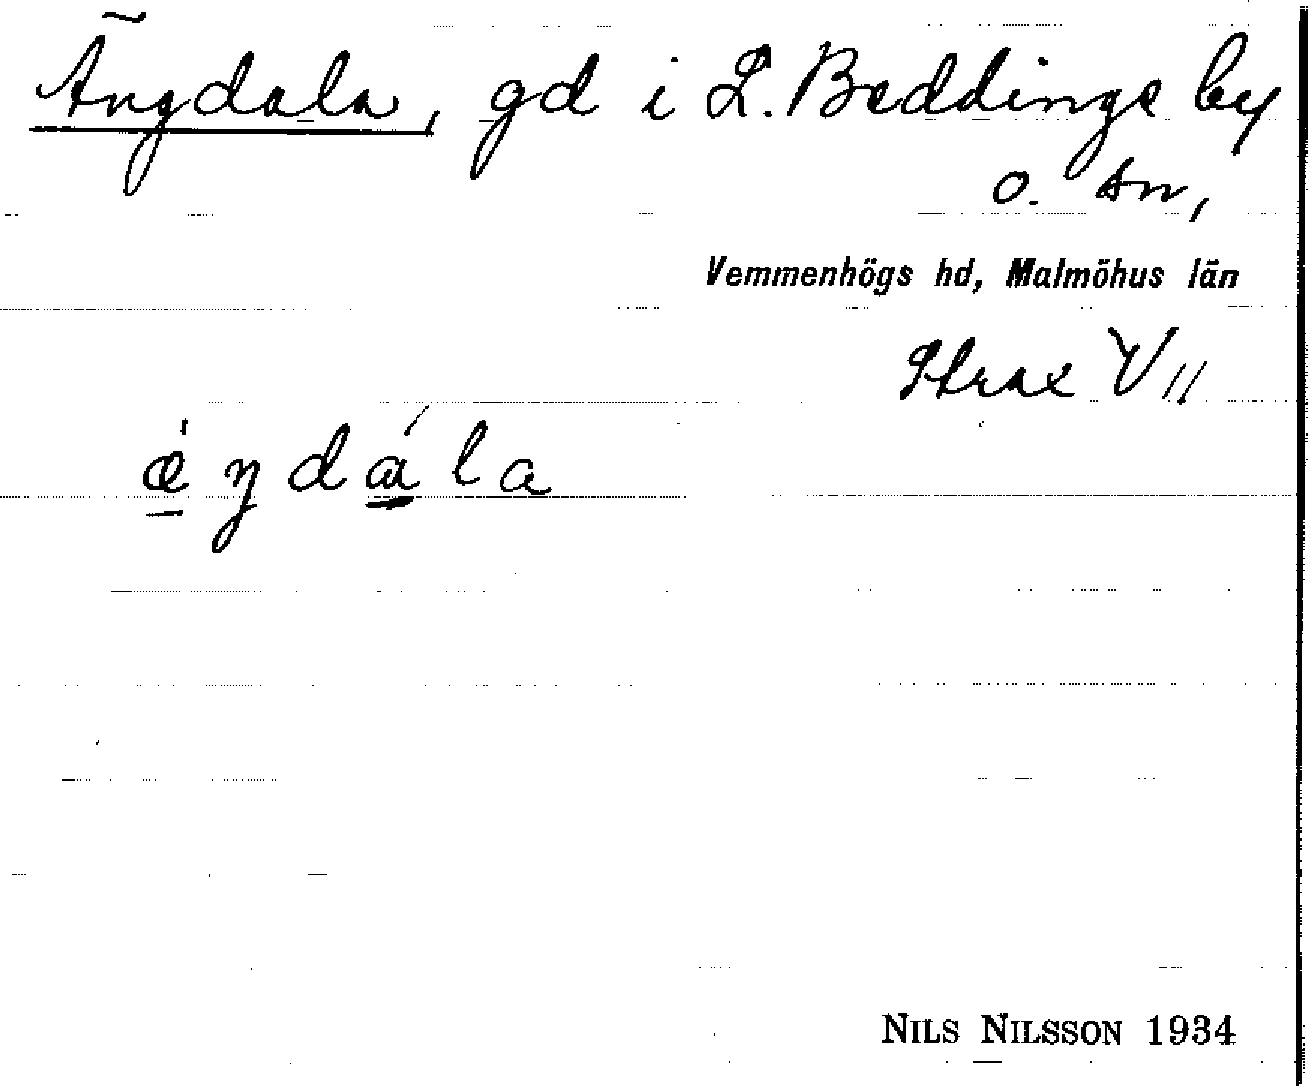 Ängdala, gd i L. Beddinge by
o. sn,
Vemmenhögs hd, Malmöhus län
Strax V //
ǽŋdála
NILS NILSSON 1934